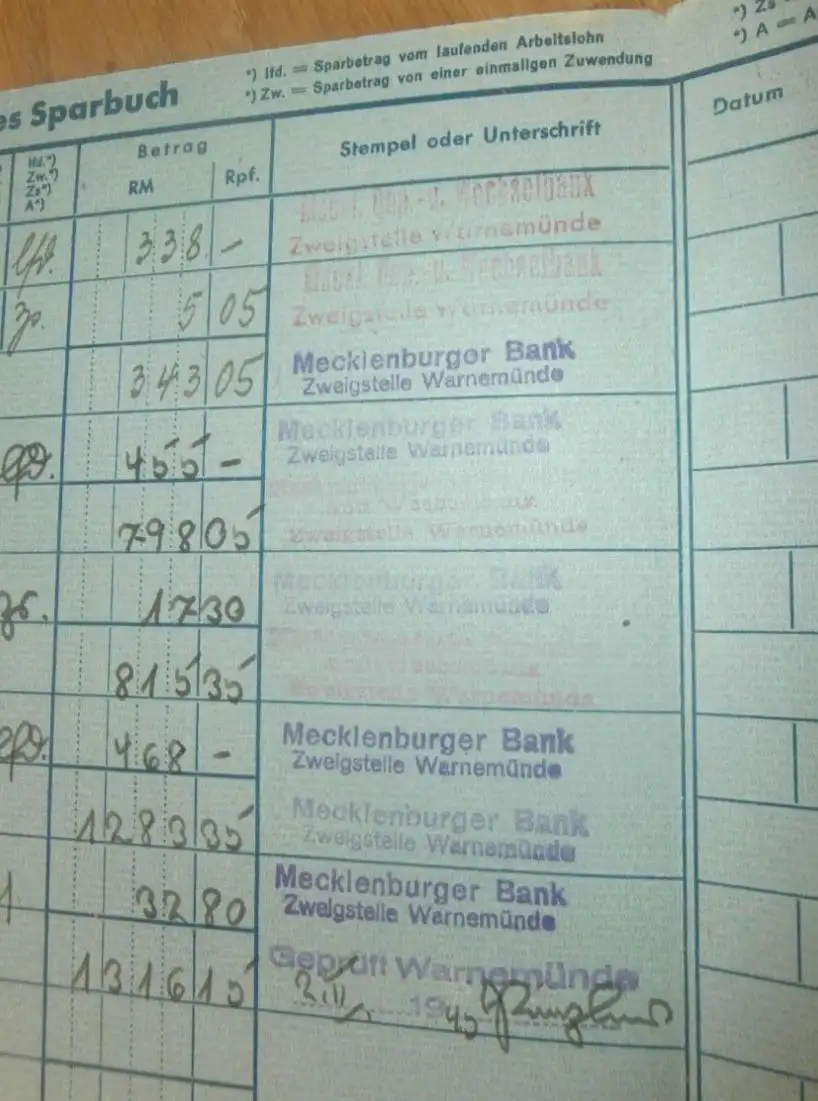 *) lfd. = Sparbetrag vom laufenden Arbeitslohn
*) Zw. = Sparbetrag von einer einmaligen Zuwendung
*) Zs
*) A = A
es Sparbuch
lfd.*)
Zw.*)
Zs*)
A*)
Betrag
RM Rpf.
Stempel oder Unterschrift
Datum
lfd. 338 –
Zweigstelle Warnemünde
Zs. 5 05
Zweigstelle Warnemünde
343 05 Mecklenburger Bank
Zweigstelle Warnemünde
lfd. 455 – Mecklenburger Bank
Zweigstelle Warnemünde
798 05
Zweigstelle Warnemünde
Zs. 17 30 Mecklenburger Bank
Zweigstelle Warnemünde
815 35
Zweigstelle Warnemünde
lfd. 468 – Mecklenburger Bank
Zweigstelle Warnemünde
1283 35 Mecklenburger Bank
Zweigstelle Warnemünde
32 80 Mecklenburger Bank
Zweigstelle Warnemünde
1316 15 Geprüft Warnemünde
1945